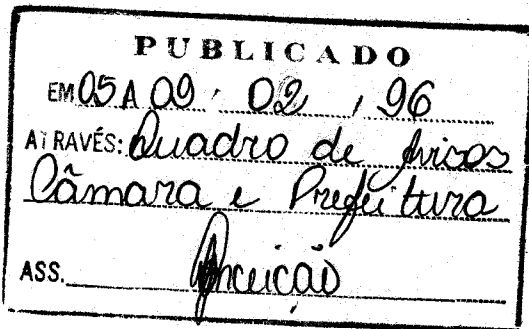 PUBLICADO
EM 05 A 09 / 02 / 96
ATRAVÉS: Quadro de Avisos
Câmara e Prefeitura
ASS. Conceição